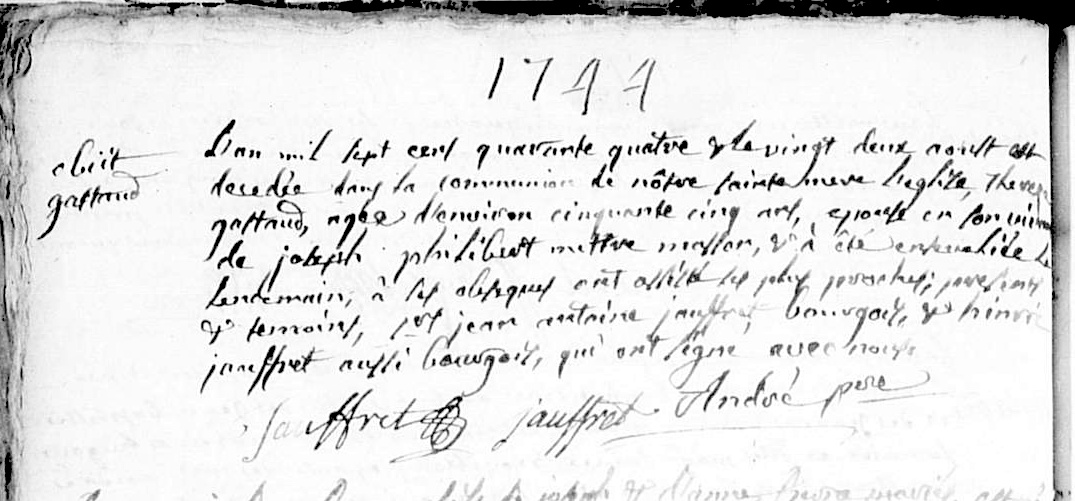 1744
obiit
gastaud
L'an mil sept cens quarante quatre & le vingt deux aoust est
decedée dans la communion de nôtre sainte mere l'eglise, Therese
gastaud, agée d'environ cinquante cinq ans, epouse en son vivant
de joseph philibert mettre masson, & à été ensevelie le
lendemain, à ses obseques ont assisté ses plus proches; presens
& temoins, sr jean antoine jauffret, bourgois, & hinri
jauffret aussi bourgois, qui ont signé avec nous.
Jauffret jauffret André pere